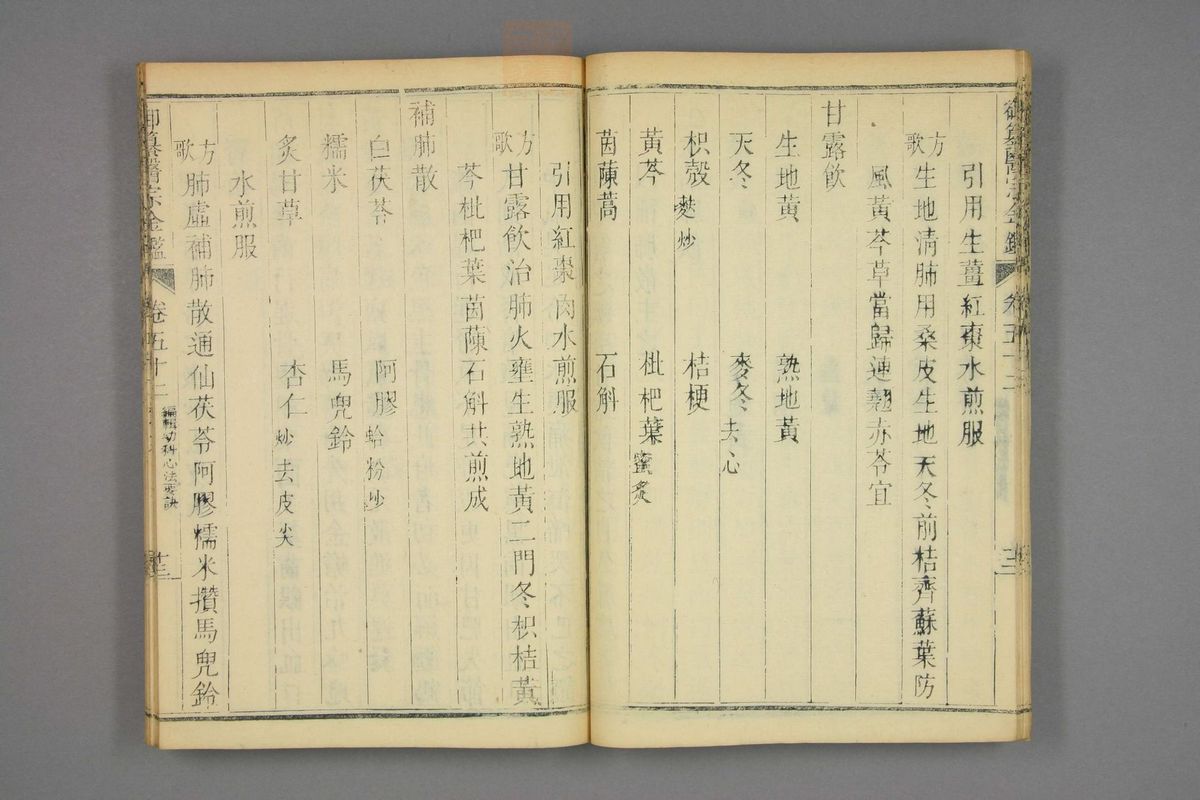 引用生薑紅棗水煎服
方歌 生地清肺用桑皮生地天冬前桔齊蘇葉防
風黃芩草當歸連翹赤苓宜
甘露飲
生地黃 熟地黃
天冬 麥冬去心
枳殼麩炒 桔梗
黃芩 枇杷葉蜜炙
茵蔯蒿 石斛
引用紅棗肉水煎服
方歌 甘露飲治肺火壅生熟地黃二門冬枳桔黃
芩枇杷葉茵蔯石斛共煎成
補肺散
白茯苓 阿膠蛤粉炒
糯米 馬兜鈴
炙甘草 杏仁炒去皮尖
水煎服
方歌 肺虛補肺散通仙茯苓阿膠糯米攢馬兜鈴
御纂醫宗金鑑 卷五十二 編輯幼科心法要訣